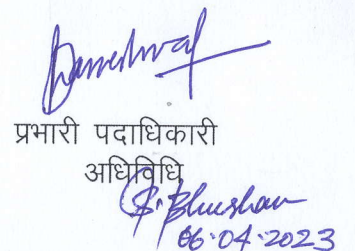 प्रभारी पदाधिकारी
अधिविधि
S. Bhushan
06.04.2023